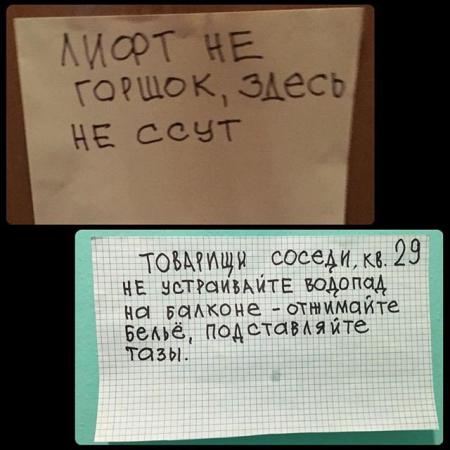 ЛИФТ НЕ
ГОРШОК, ЗДЕСЬ
НЕ ССУТ
ТОВАРИЩИ СОСЕДИ, КВ. 29
НЕ УСТРАИВАЙТЕ ВОДОПАД
НА БАЛКОНЕ - ОТЖИМАЙТЕ
БЕЛЬЁ, ПОДСТАВЛЯЙТЕ
ТАЗЫ.